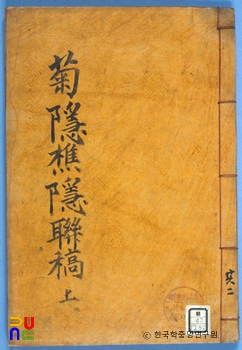 菊隱樵隱聯稿 上
共二
© 한국학중앙연구원